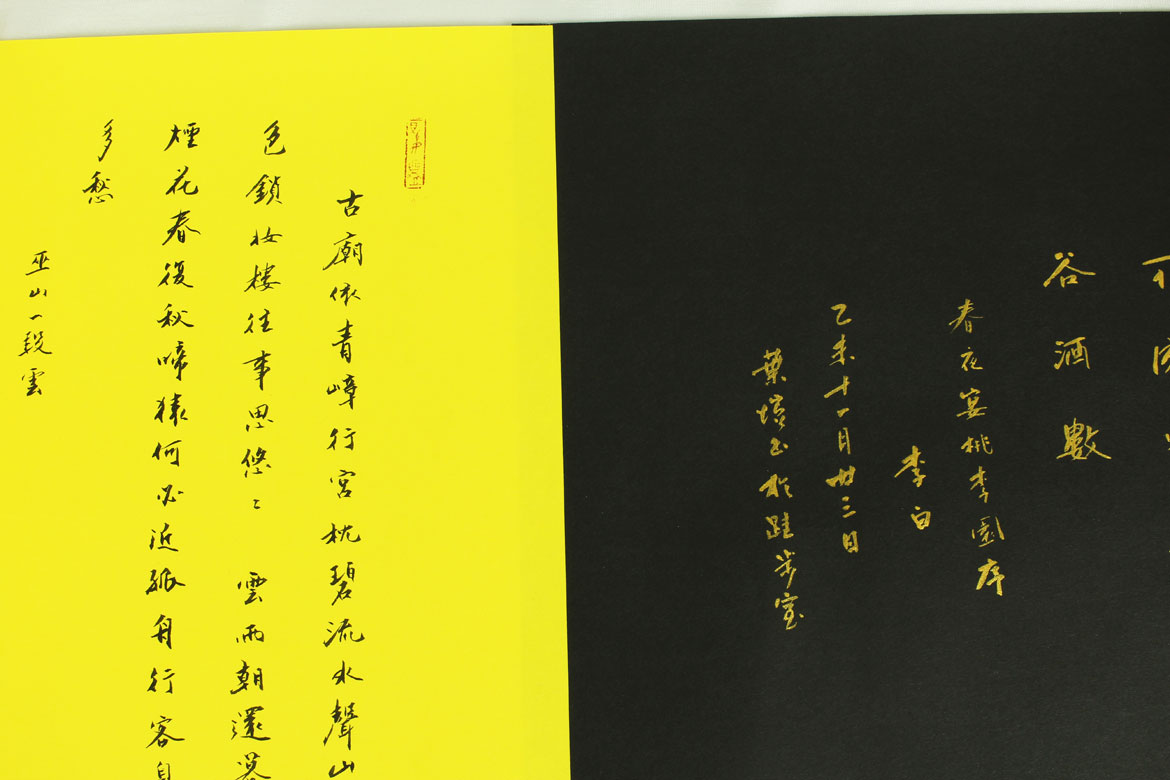 谷酒數
春夜宴桃李園序
李白
乙未十一月廿三日
葉書於跬步室
古廟依青嶂行宮枕碧流水聲山
色鎖妝樓往事思悠〻 雲雨朝還暮
煙花春復秋啼猿何必近孤舟行客自
多愁
巫山一段雲